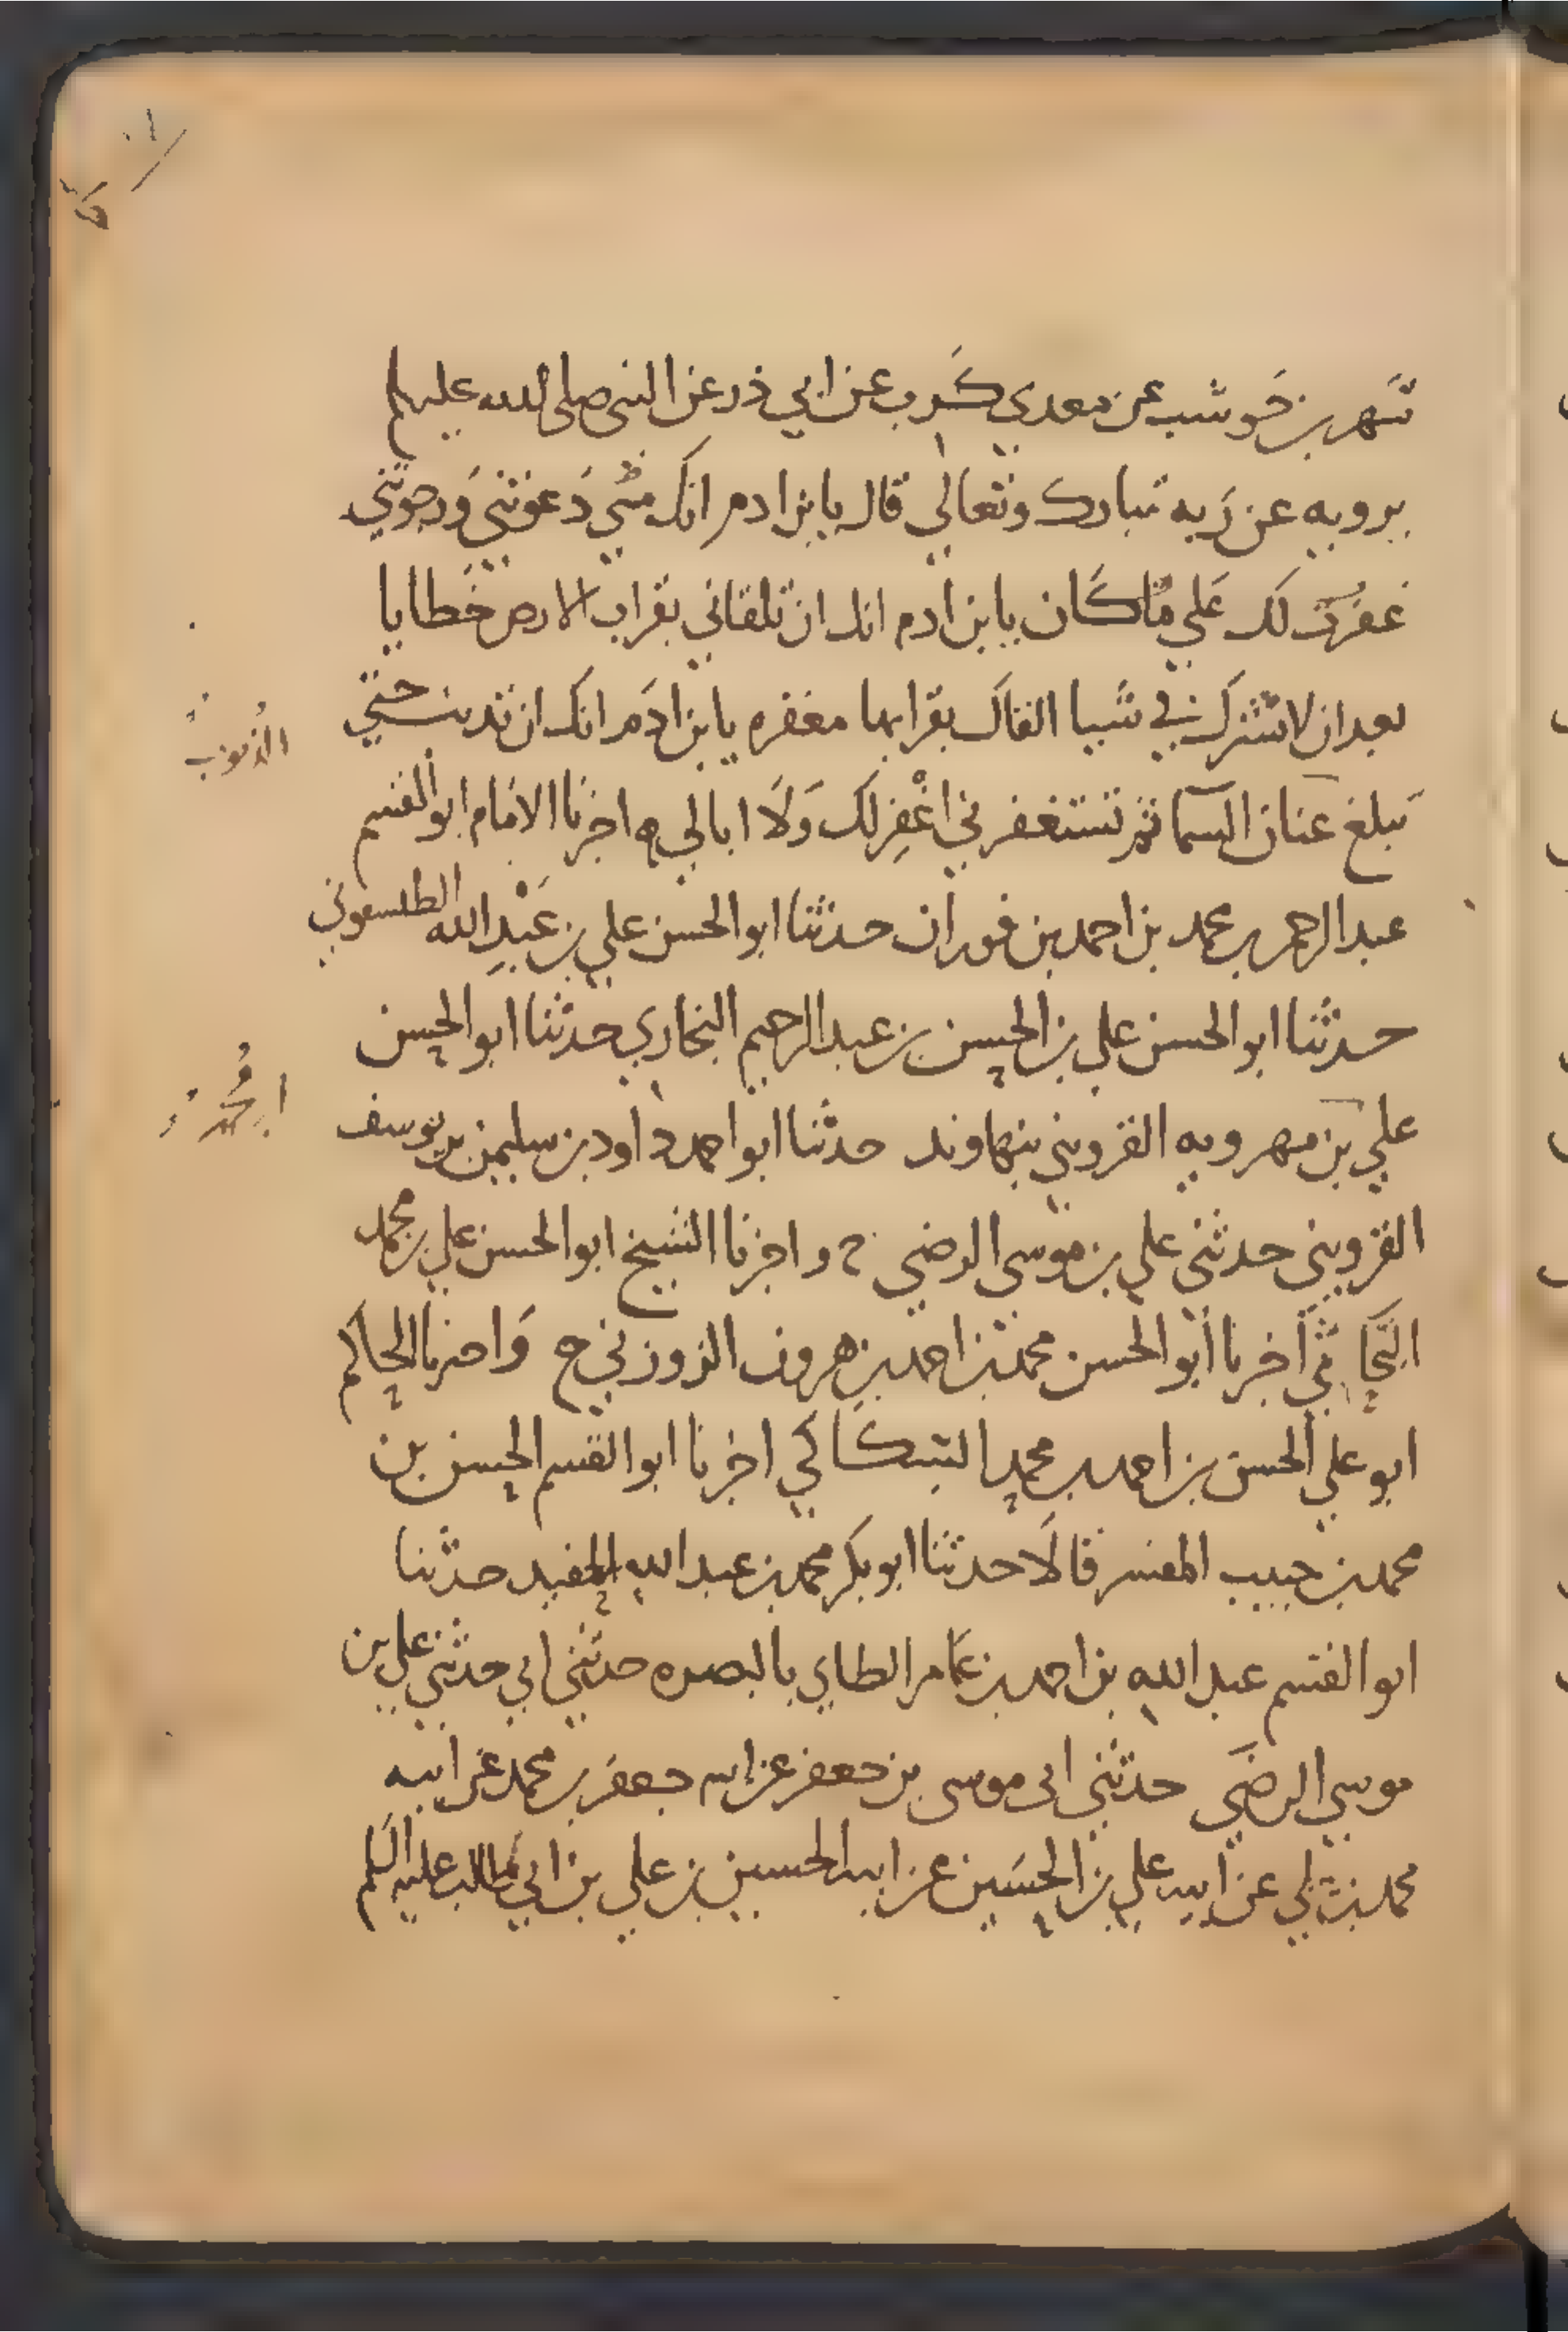 شهر بن حوشب عن معدي كَرب عن ابي ذر عن النبي صلى الله عليه
يرويه عن رَبه تبارك وتعالي قال يا بن ادم انك متي دَعوتني وَرجوتني
غفرت لك عَلي ما كَان يا بن ادم انك ان تلقاني بقراب الارض خَطايا
بعد ان لا تشرك بي شيا القاكَ بقرابها مغفره يا بن ادَم انك ان تذنب حتي
الذنوب
يَبلغ عنان السما ثم تستغفرني اغْفِر لك وَلَا ابالي ه اخبرنا الامَام ابو القسم
عبد الرحمن بن محمد بن احمد بن فوران حدثنا ابو الحسن علي بن عَبْدِ الله الطيسفوني
حدثنا ابو الحسن علي بن الحسن بن عبد الرحيم البخاري حدثنا ابو الحسن
علي بن مهرويه القزويني بنهاوند حدثنا ابو احمد داود بن سليمن بن يوسف
القزويني حدثني علي بن موسى الرضي ح واخبرنا الشيخ ابو الحسن علي بن محمد
اخبرنا أبو الحسن محمد بن احمد بن هرون الزوزني ح وَاخبرنا الحاكم
ابو علي الحسن بن احمد بن محمد اخبرنا ابو القسم الحسن بن
محمد بن حبيب المفسر قالَا حدثنا ابو بكر محمد بن عبد الله الحفيد حدثنا
ابو القسم عبد الله بن احمد بن عَامر الطاي بالبصره حدثني ابي حدثني علي بن
موسي الرضَي حدثني ابي موسى بن جعفر عن ابيه جعفر بن محمد عن ابيه
محمد بن علي عن ابيه علي بن الحسَين عن ابيه الحسين بن علي بن ابي طالب عليه السلم